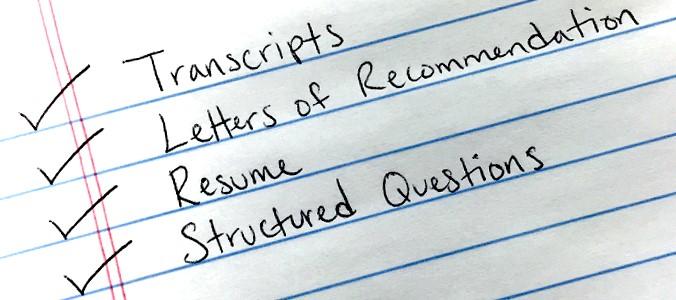 ✓ Transcripts
✓ Letters of Recommendation
✓ Resume
✓ Structured Questions